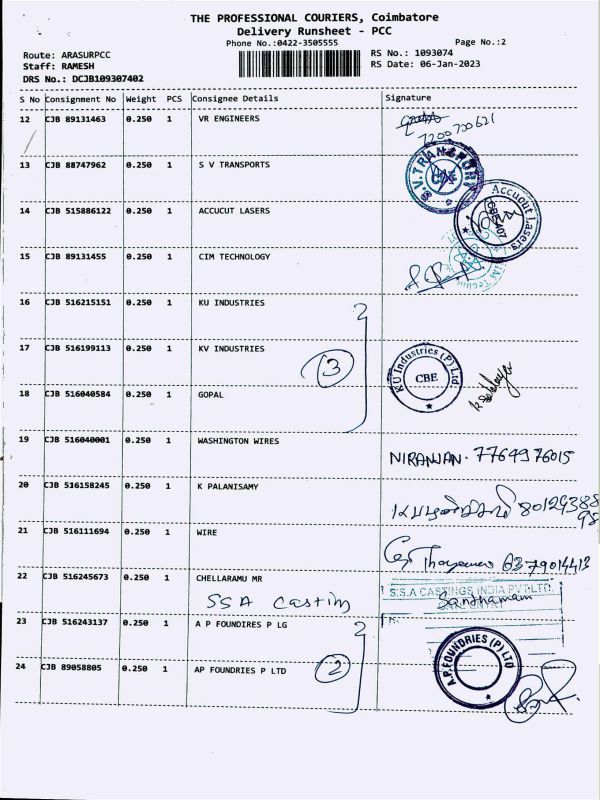 THE PROFESSIONAL COURIERS, Coimbatore
Delivery Runsheet - PCC
Phone No.:0422-3505555 Page No.:2
Route: ARASURPCC RS No.: 1093074
Staff: RAMESH RS Date: 06-Jan-2023
DRS No.: DCJB109307402
S No Consignment No Weight PCS Consignee Details Signature
12 CJB 89131463 0.250 1 VR ENGINEERS
7200700621
13 CJB 88747962 0.250 1 S V TRANSPORTS
S.V.TRANSPORT
14 CJB 515886122 0.250 1 ACCUCUT LASERS
Accucut Lasers
15 CJB 89131455 0.250 1 CIM TECHNOLOGY
16 CJB 516215151 0.250 1 KU INDUSTRIES
17 CJB 516199113 0.250 1 KV INDUSTRIES
3
KU Industries (P) Ltd.
CBE
18 CJB 516040584 0.250 1 GOPAL
19 CJB 516040001 0.250 1 WASHINGTON WIRES
NIRANJAN. 7764976015
20 CJB 516158245 0.250 1 K PALANISAMY
8012938898
21 CJB 516111694 0.250 1 WIRE
6379014413
22 CJB 516245673 0.250 1 CHELLARAMU MR
SSA Casting
S.S.A CASTINGS INDIA PVT.LTD.
Santhamani
23 CJB 516243137 0.250 1 A P FOUNDIRES P LG
24 CJB 89058805 0.250 1 AP FOUNDRIES P LTD
2
A.P.FOUNDRIES (P) LTD